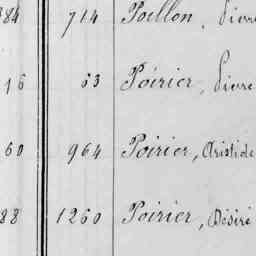 84 714 Poillon, Pierre
16 63 Poirier, Pierre
60 964 Poirier, Aristide
88 1260 Poirier, Désiré